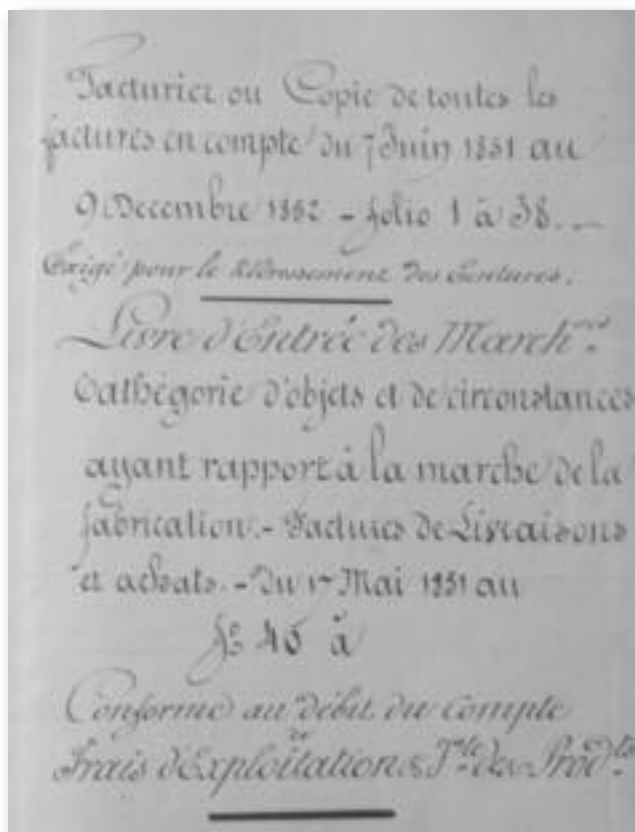 Facturier ou Copie de toutes les
factures en compte du 7 Juin 1851 au
9 Decembre 1852 - folio 1 à 38.
Exigé pour le des
Livre d'Entrée des March.
Cathégorie d'objets et de circonstances
ayant rapport à la marche de la
fabrication. - Factures de Livraisons
et achats. - Du 1er Mai 1851 au
fº 46 à
Conforme au débit du compte
Frais d'Exploitation & des